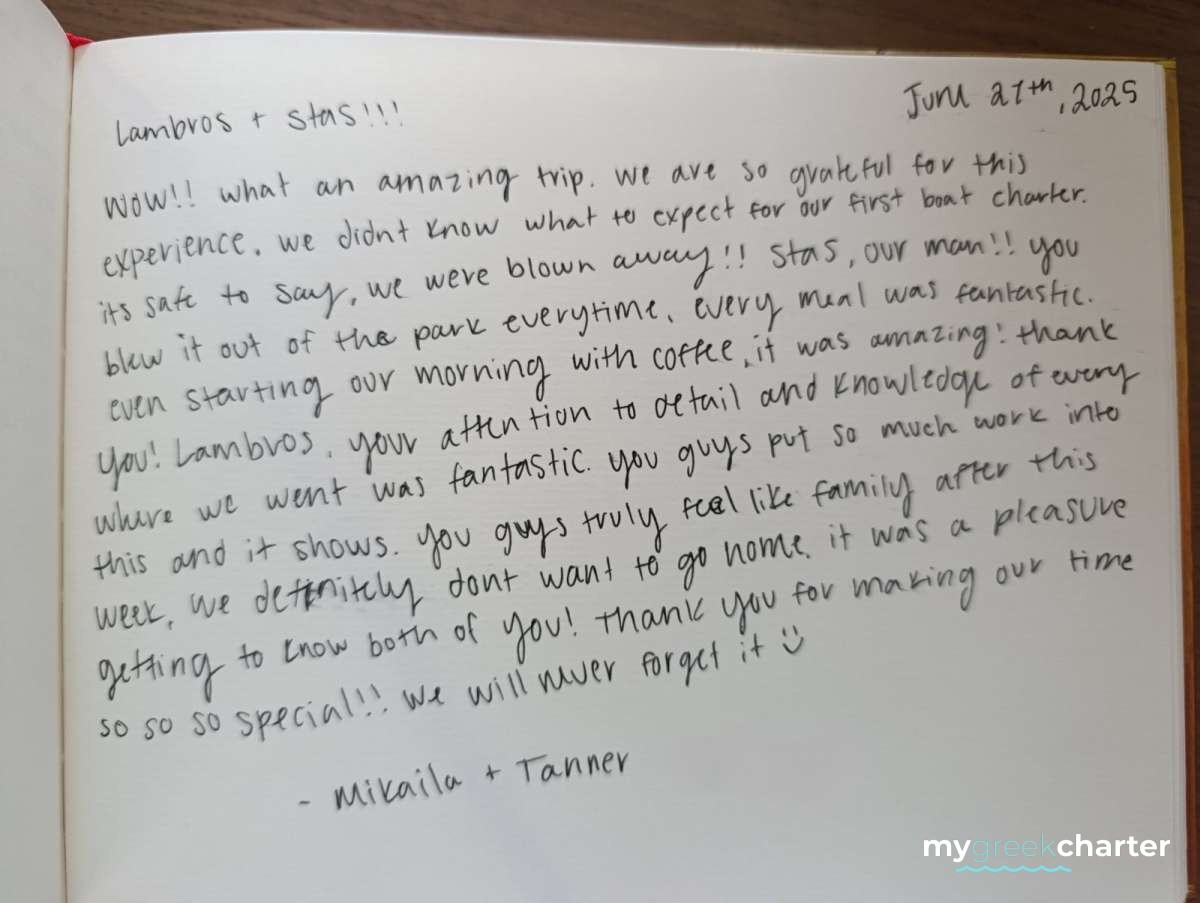 June 27th, 2025
Lambros + Stas!!!
Wow!! what an amazing trip. we are so grateful for this
experience. we didnt know what to expect for our first boat charter.
its safe to say, we were blown away!! Stas, our man!! you
blew it out of the park everytime. every meal was fantastic.
even starting our morning with coffee, it was amazing! thank
you! Lambros, your attention to detail and knowledge of every
where we went was fantastic. you guys put so much work into
this and it shows. you guys truly feel like family after this
week, we definitely dont want to go home. it was a pleasure
getting to know both of you! thank you for making our time
so so so special!! we will never forget it :)
- Mikaila + Tanner
mygreekcharter